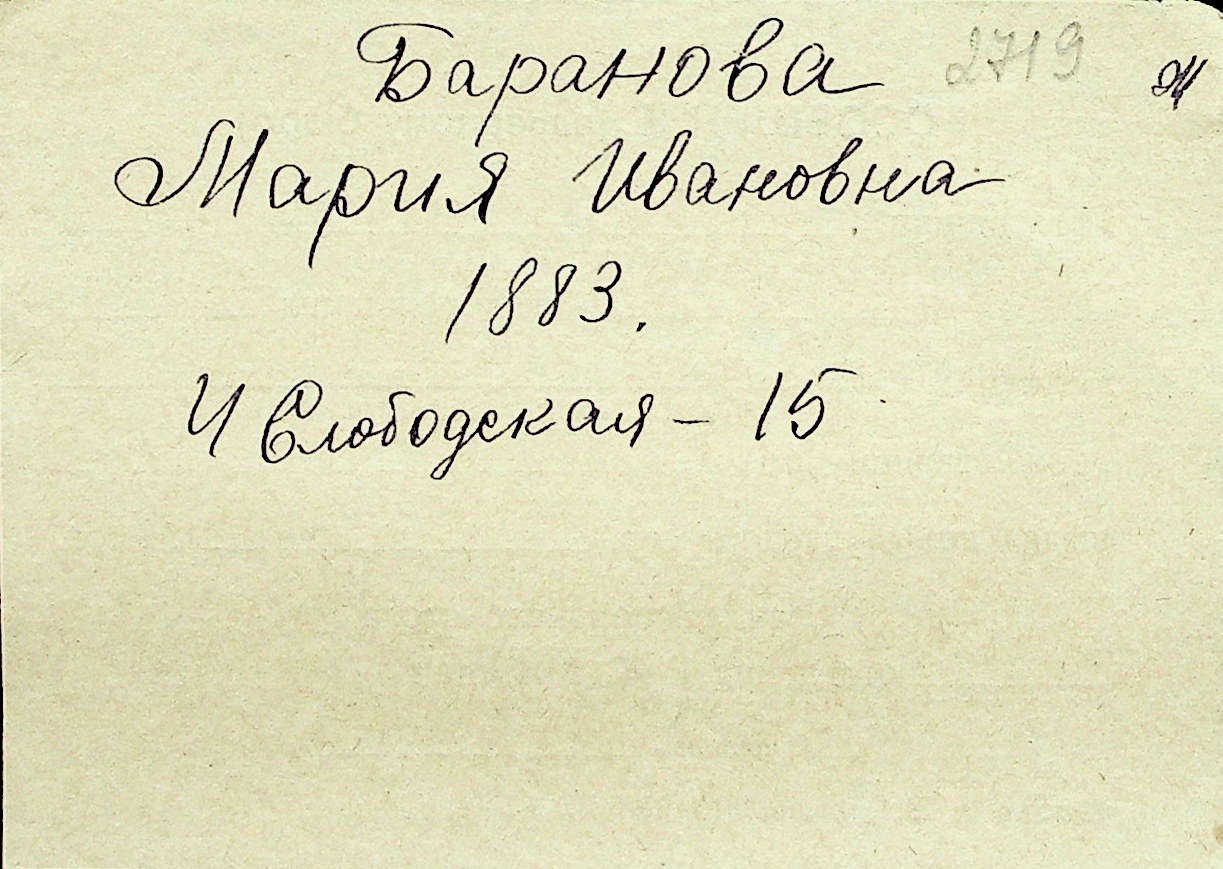 Баранова 2719
Мария Ивановна
1883.
4 Слободская - 15